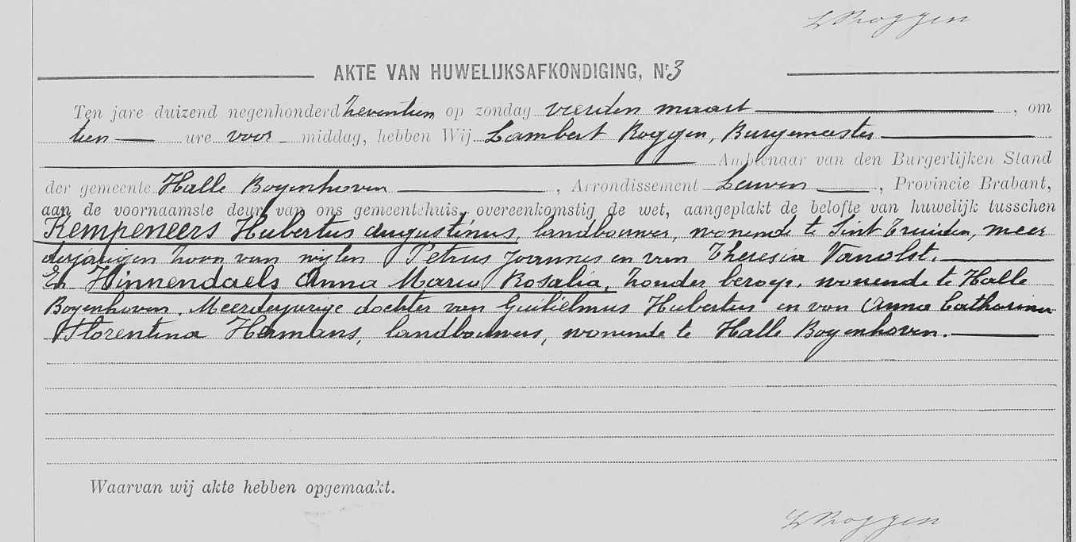 L Roggen
AKTE VAN HUWELIJKSAFKONDIGING, Nr 3
Ten jare duizend negenhonderd zeventien op zondag vierden maart, om
tien ure voor middag, hebben Wij Lambert Roggen, Burgemeester
Ambtenaar van den Burgerlijken Stand
der gemeente Halle Boyenhoven, Arrondissement Leuven, Provincie Brabant,
aan de voornaamste deur van ons gemeentehuis, overeenkomstig de wet, aangeplakt de belofte van huwelijk tusschen
Kempeneers Hubertus Augustinus, landbouwer, wonende te Sint Truiden, meer
derjarigen zoon van wijlen Petrus Joannes en van Theresia Vanolst.
En Hinnendaels Anna Maria Rosalia, zonder beroep, wonende te Halle
Boyenhoven. Meerderjarige dochter van Guilielmus Hubertus en van Anna Catharina
Florentina Hermans, landbouwers, wonende te Halle Boyenhoven.
Waarvan wij akte hebben opgemaakt.
L Roggen